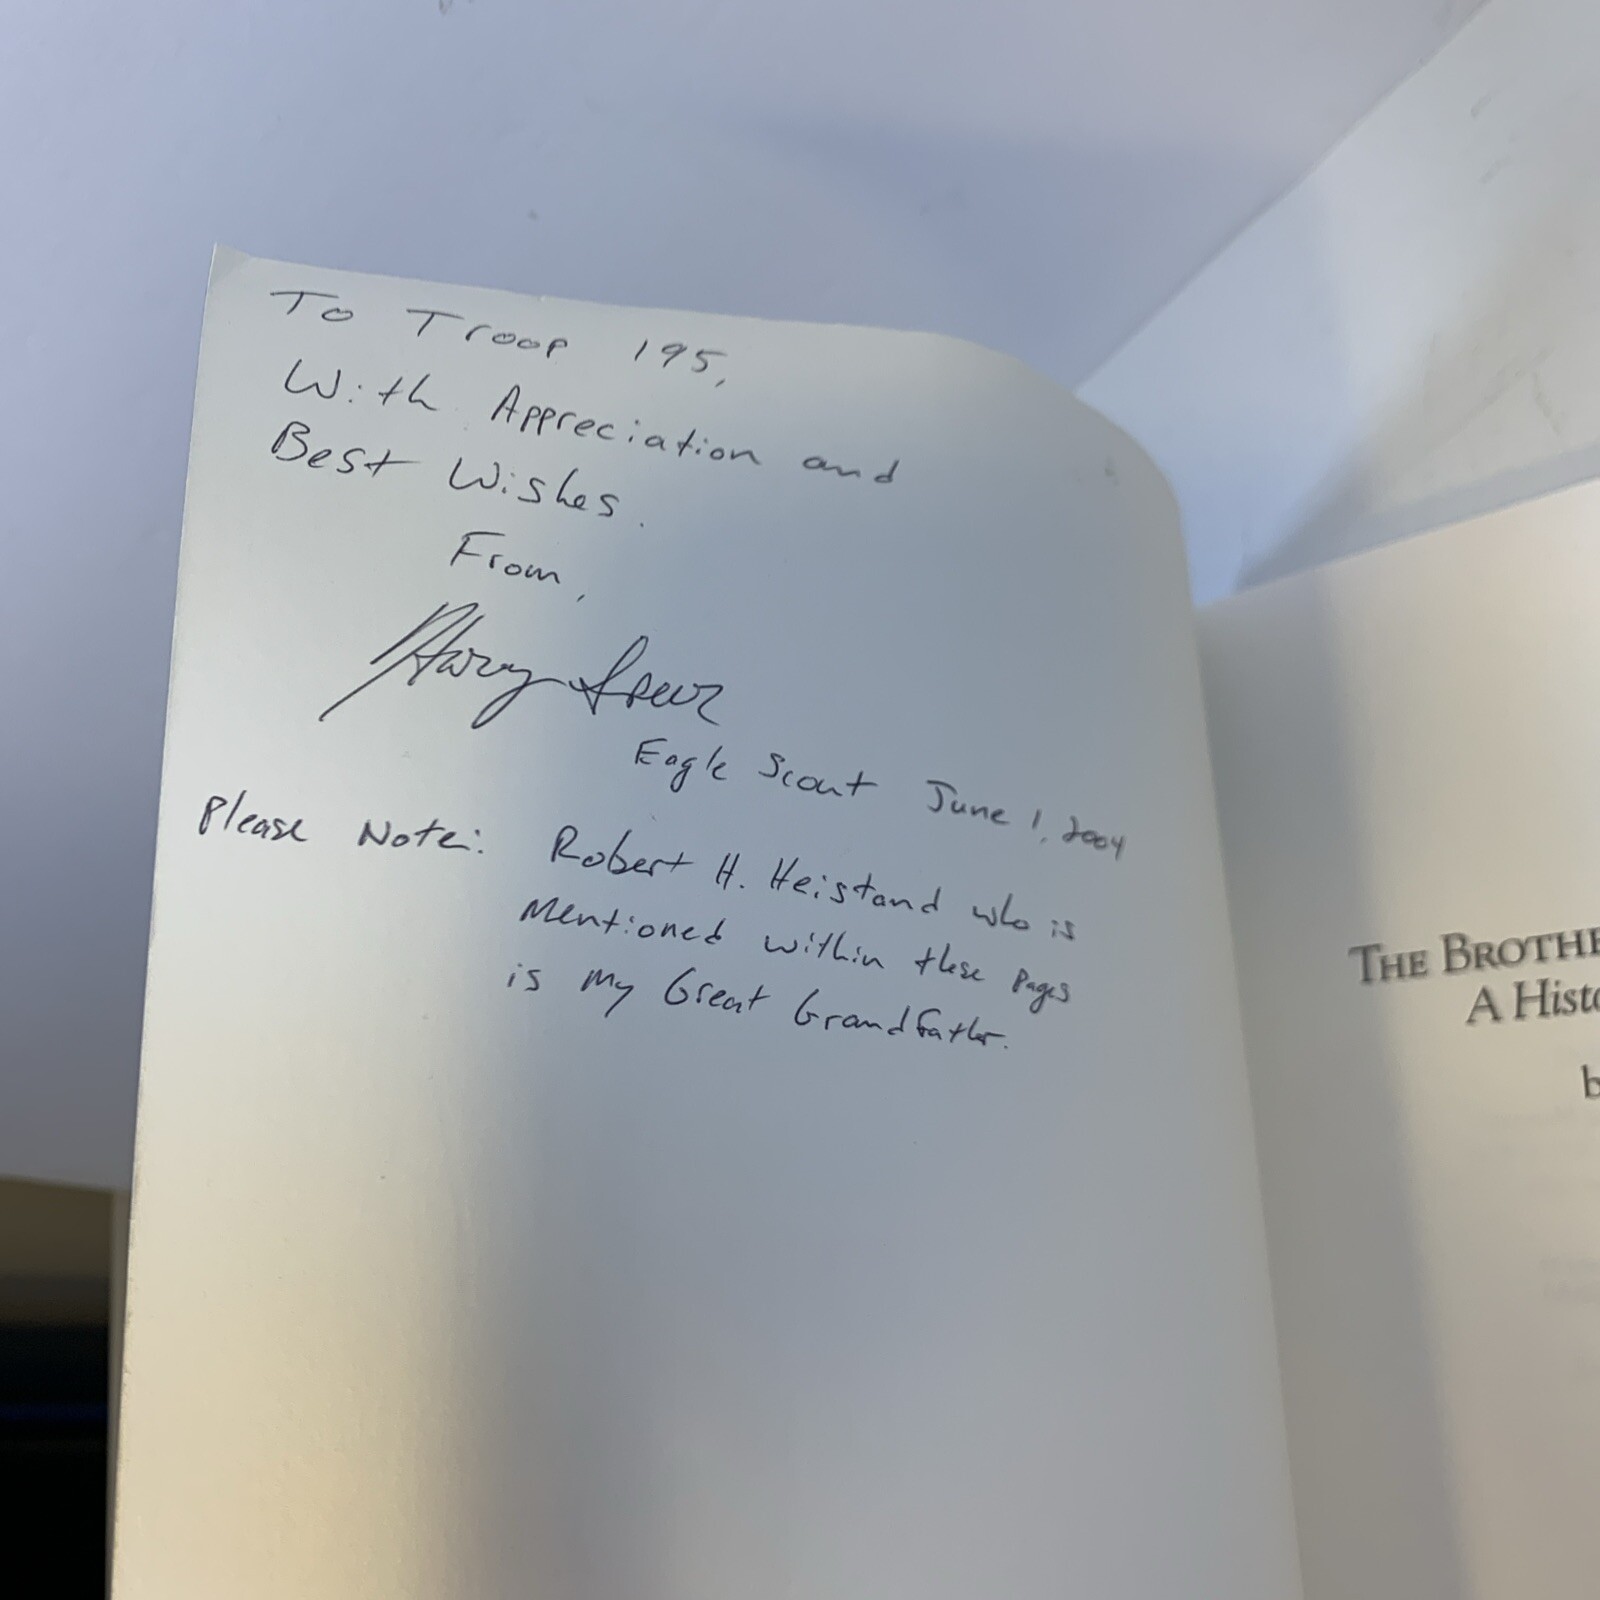 To Troop 195,
With Appreciation and
Best Wishes.
From,
Eagle Scout June 1, 2004
Please Note: Robert H. Heistand who is
Mentioned within these pages
is my Great Grandfather.
THE BROTHE
A Histo
b